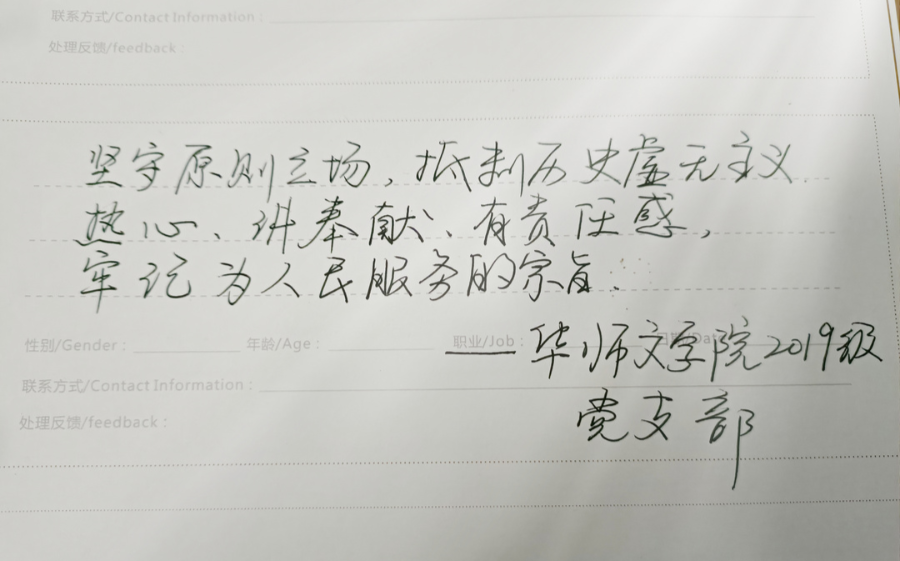 联系方式/Contact Information：
处理反馈/feedback：
坚守原则立场，抵制历史虚无主义
热心、讲奉献、有责任感，
牢记为人民服务的宗旨.
性别/Gender： 年龄/Age： 职业/Job： 日期/Dat
——华师文学院2019级
联系方式/Contact Information：
党支部
处理反馈/feedback：